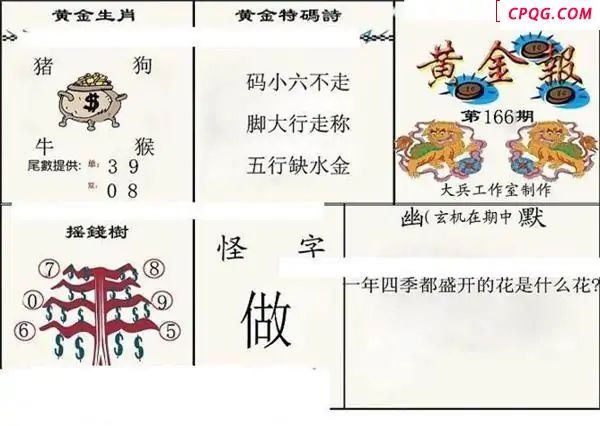 CPQG.COM
黄金生肖
猪 狗
$
牛 猴
尾數提供: 单: 3 9
双: 0 8
黄金特碼詩
码小六不走
脚大行走称
五行缺水金
黄金報
第166期
大兵工作室制作
摇錢樹
⑦ ⑧
⓪ ⑨
⑥ ⑤
怪 字
做
幽(玄机在期中)默
一年四季都盛开的花是什么花?